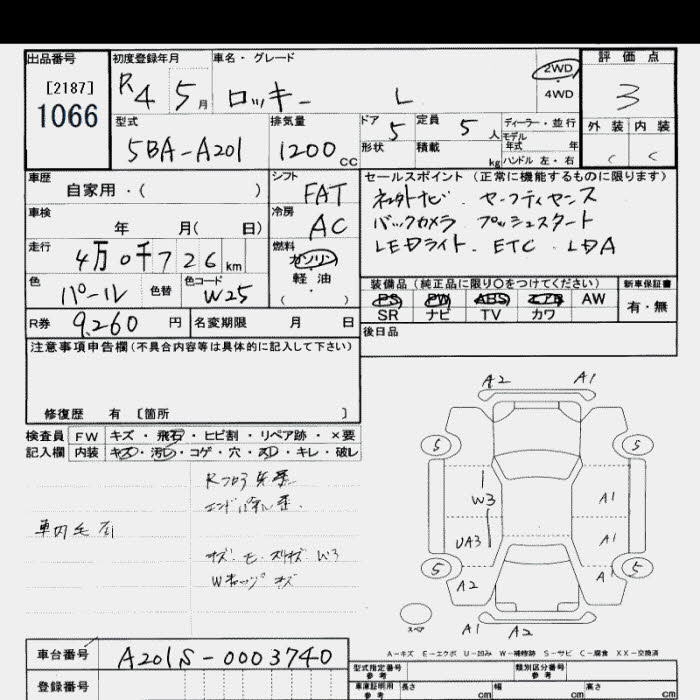 出品番号 初度登録年月 車名・グレード 評価点
[2187] 2WD
1066 R4 5月 ロッキー L ・4WD 3
型式 排気量 ドア 定員 ディーラー・並行 外装 内装
5BA-A201 1200cc 5 5人 モデル年式 年
形状 積載 kg ハンドル 左・右 C C
車歴 シフト セールスポイント (正常に機能するものに限ります)
自家用・( ) FAT
車検 冷房 バックカメラ プッシュスタート
年 月( 日) AC LEDライト. ETC. LDA
走行 燃料
4万0千726km ガソリン
色 色替 色コード 軽油 装備品 (純正品に限り〇をつけてください) 新車保証書
パール W25 ・( ) PS PW ABS エアB AW 有・無
R券 9,260円 名変期限 月 日 SR ナビ TV カワ
後日品
注意事項申告欄(不具合内容等は具体的に記入して下さい)
修復歴 有 [箇所 ]
検査員 FW キズ・飛石・ヒビ割・リペア跡・×要
記入欄 内装 キズ・汚レ・コゲ・穴・スレ・キレ・破レ
A2 A1
5 5
W3 A1
UA3 A1
5 A1 5
A2
W3
スペア A1 A2
A-キズ E-エクボ U-凹み W-補修跡 S-サビ C-腐食 XX-交換済
車台番号 A201S-0003740 型式指定番号 参考 類別区分番号 参考
登録番号 車庫証明用 参考 長さ cm 幅 cm 高さ cm